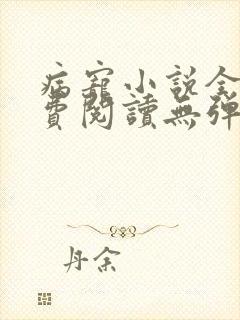 病寵小說全
費閱讀無彈
丹余